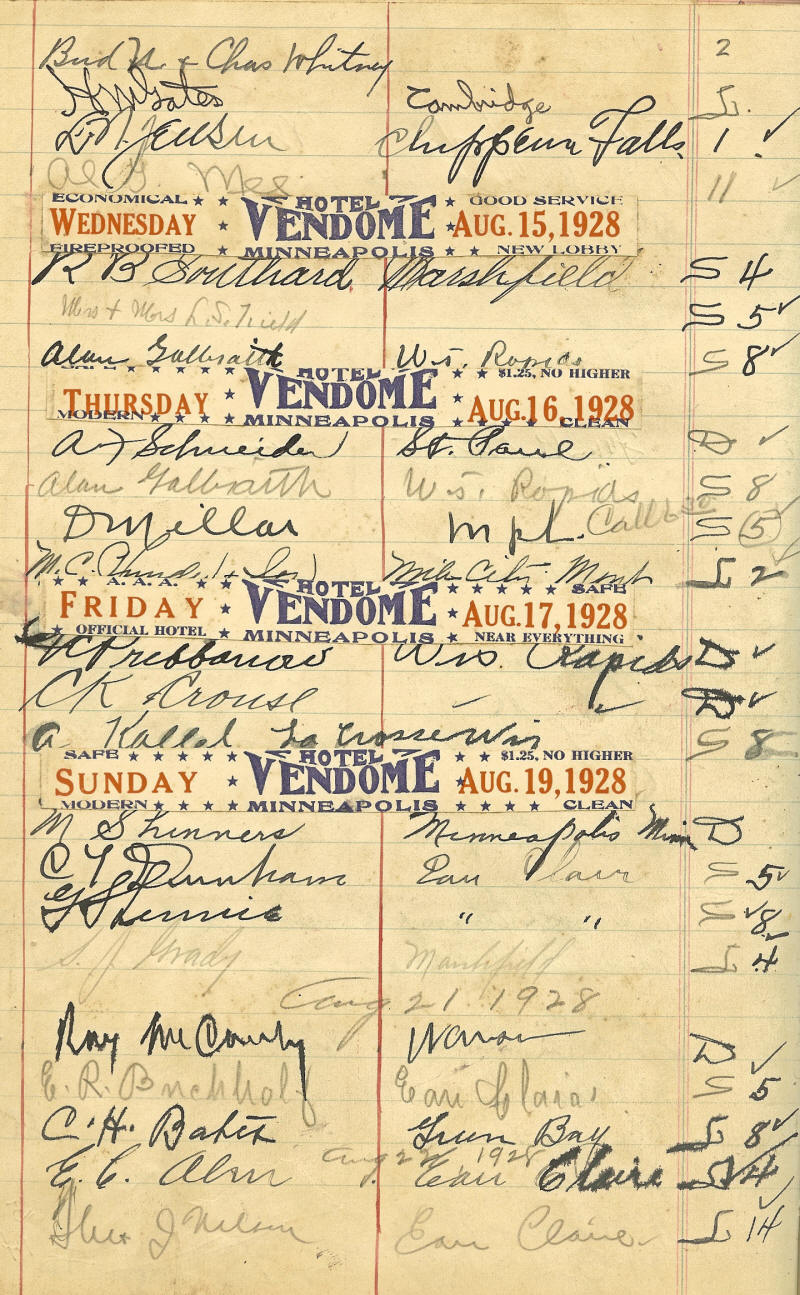 Bud N. + Chas Whitney 2
H M Gates Cambridge L.
L. N. Jensen Chippewa Falls. 1 ✓
Al G 11 ✓
ECONOMICAL ★ ★ HOTEL ★ ★ GOOD SERVICE
WEDNESDAY ★ VENDOME ★ AUG. 15, 1928
FIREPROOFED ★ ★ MINNEAPOLIS ★ ★ NEW LOBBY
R B Southard Marshfield S 4
Mrs + Mrs L. S. Field S 5 ✓
Alan Galbraith Wis. Rapids S 8 ✓
HOTEL ★ ★ $1.25, NO HIGHER
THURSDAY ★ VENDOME ★ AUG. 16, 1928
MODERN ★ ★ ★ ★ MINNEAPOLIS ★ ★ ★ ★ CLEAN
A J Schneider St. Paul D ✓
Alan Galbraith Wis. Rapids S 8
D Millar Mpls. Call 6 30 S 5 ✓
M. C. & Son Mile City Mont L 2 ✓
★ ★ A. A. A. ★ ★ HOTEL ★ ★ ★ ★ ★ SAFE
FRIDAY ★ VENDOME ★ AUG. 17, 1928
★ OFFICIAL HOTEL ★ MINNEAPOLIS ★ NEAR EVERYTHING
Prebbanow Wis. Rapids D ✓
CK Crouse " " D ✓
A Kallal La Crosse Wis S 8
SAFE ★ ★ ★ ★ ★ HOTEL ★ ★ $1.25, NO HIGHER
SUNDAY ★ VENDOME ★ AUG. 19, 1928
MODERN ★ ★ ★ ★ MINNEAPOLIS ★ ★ ★ ★ CLEAN
M Skinners Minneapolis Minn D
C Y Dunham Eau Clair S 5 ✓
G " " S ✓8
S. J. Grady Marshfield L 4 ✓
Aug 21. 1928
Ray McCourty D ✓
E. R. Buchholf Eau Claire S 5
C. H. Bates Green Bay L 8 ✓
Aug 22 1928
E. C. Alm Eau Claire L 4 ✓
J Nelson Eau Claire L 14 ✓